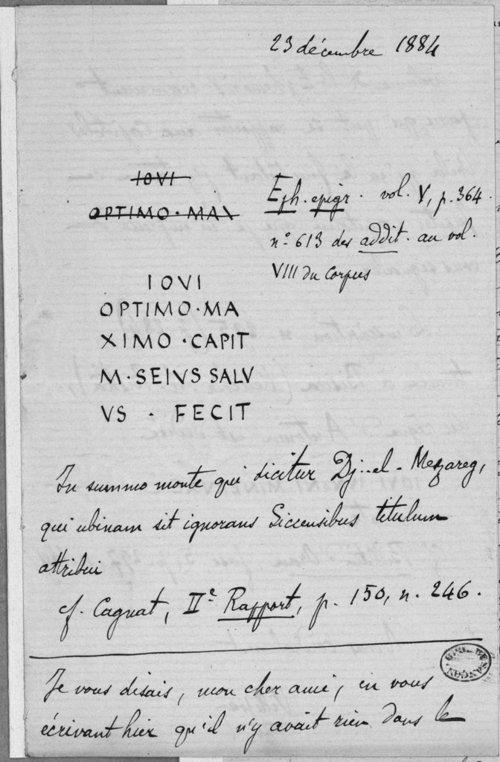 23 décembre 1884
IOVI
OPTIMO·MAX
Eph. epigr. vol. V, p. 364.
nº 613 des addit. au vol.
VIII du Corpus
IOVI
OPTIMO·MA
XIMO·CAPIT
M·SEIVS SALV
VS · FECIT
In summo monte qui dicitur Dj.-el-Mezareg,
qui ubinam sit ignorans Siccensibus titulum
attribui
cf. Cagnat, IIe Rapport, p. 150, n. 246.
Je vous disais, mon cher ami, en vous
écrivant hier qu'il n'y avait rien dans le